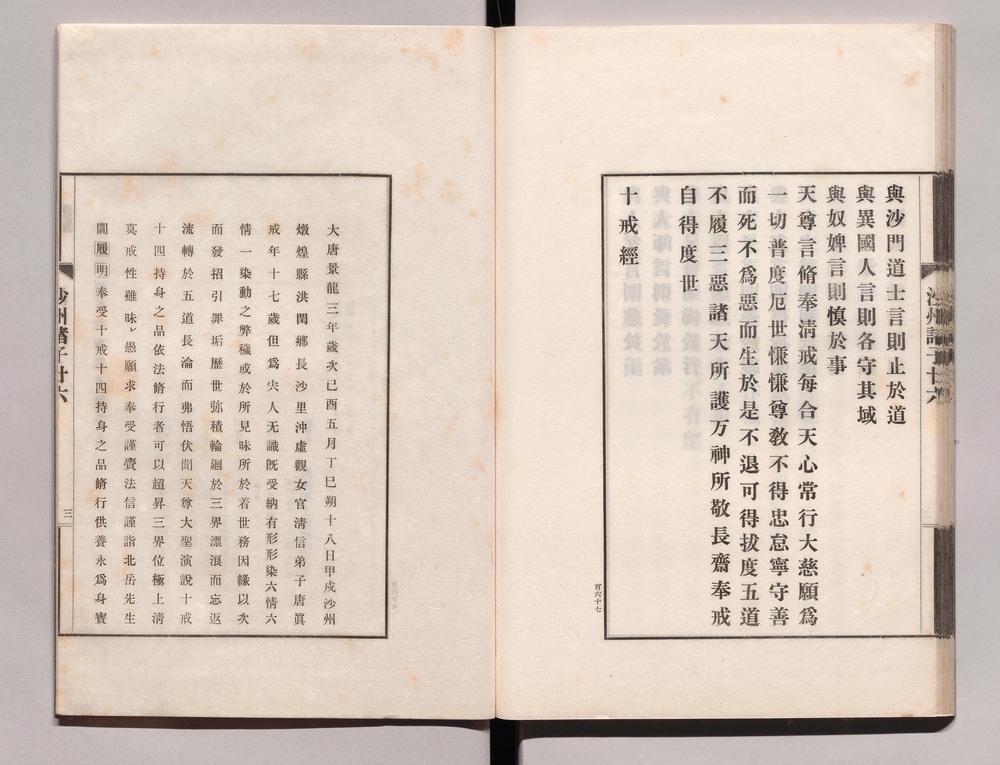 與沙門道士言則止於道
與異國人言則各守其域
與奴婢言則慎於事
天尊言脩奉淸戒每合天心常行大慈願爲
一切普度厄世慊慊尊敎不得忠怠寧守善
而死不爲惡而生於是不退可得拔度五道
不履三惡諸天所護万神所敬長齋奉戒
自得度世
十戒經
百六十七
大唐景龍三年歲次己酉五月丁巳朔十八日甲戌沙州
燉煌縣洪閏鄉長沙里沖虛觀女官淸信弟子唐眞
戒年十七歲但爲宍人无識旣受納有形形染六情六
情一染動之弊穢或於所見昧所於着世務因緣以次
而發招引罪垢歷世弥積輪廻於三界漂浪而忘返
流轉於五道長淪而弗悟伏聞天尊大聖演說十戒
十四持身之品依法脩行者可以超昇三界位極上淸
真戒性雖昧〻愚願求奉受謹賷法信謹詣北岳先生
閻履明奉受十戒十四持身之品脩行供養永爲身寶
沙州諸子廿六
三